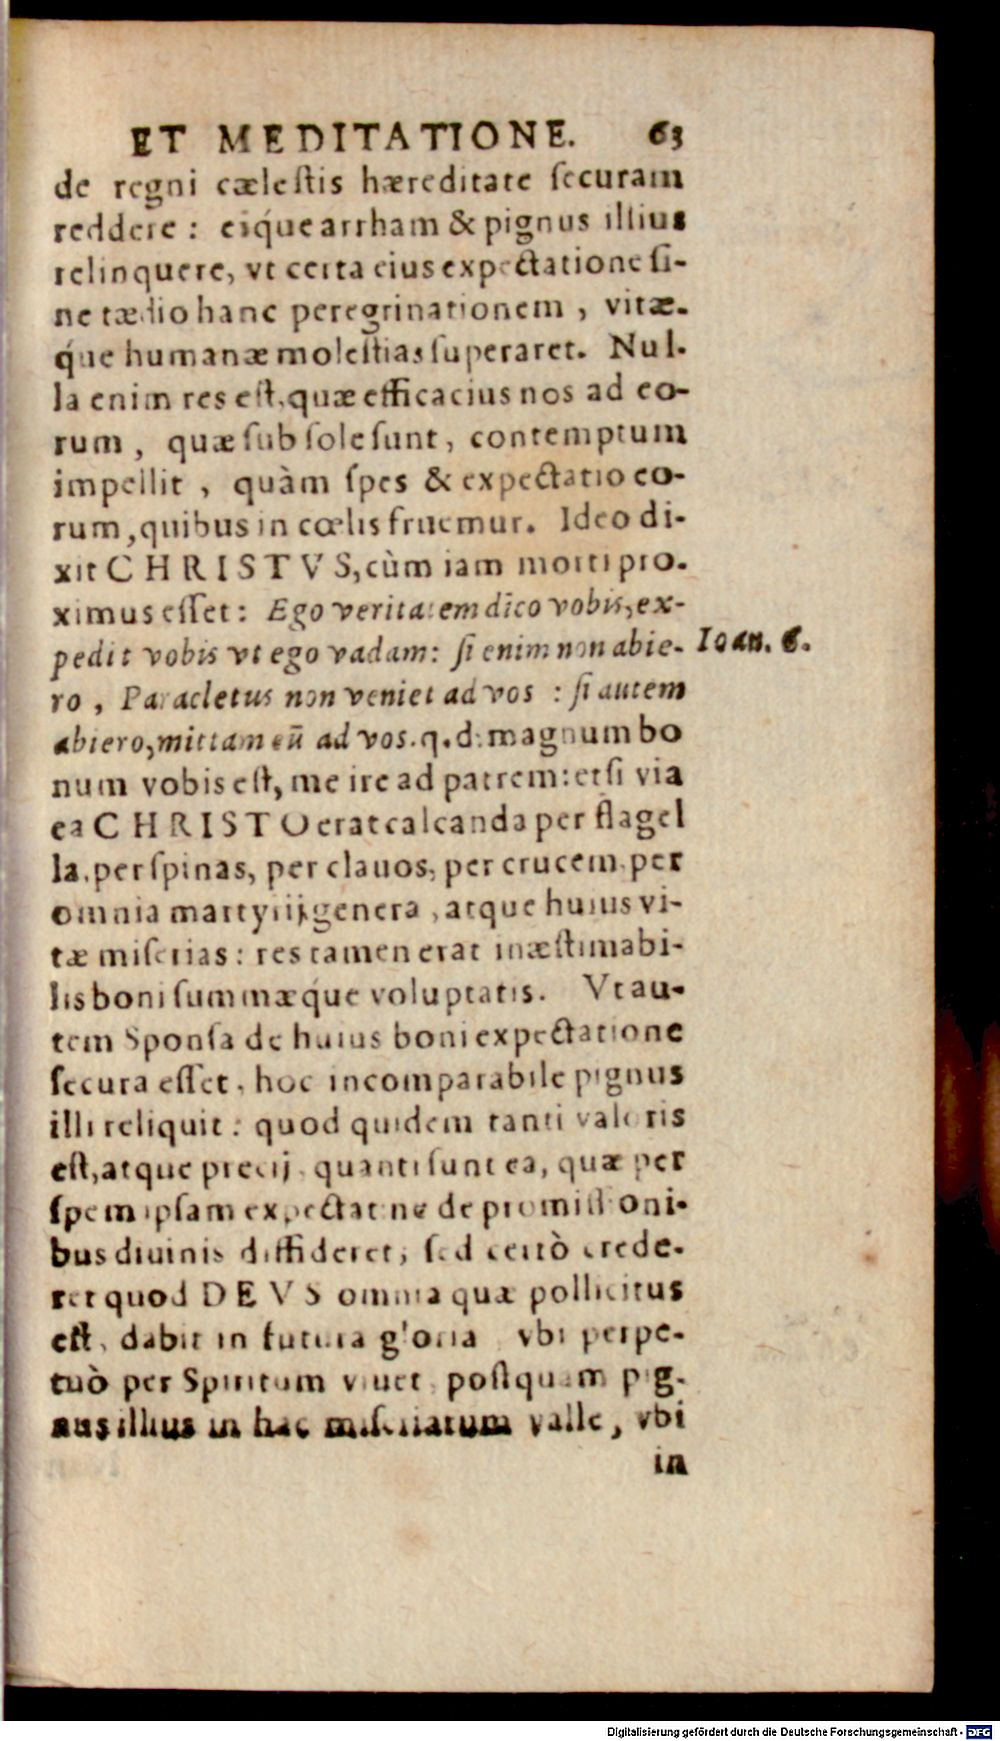 ET MEDITATIONE. 63
de regni cælestis hæreditate securam
reddere : eiq́ue arrham & pignus illius
relinquere, vt certa eius expectatione si-
ne tædio hanc peregrinationem , vitæ-
q́ue humanæ molestias superaret. Nul-
la enim res est, quæ efficacius nos ad eo-
rum , quæ sub sole sunt, contemptum
impellit , quàm spes & expectatio eo-
rum, quibus in cœlis fruemur. Ideo di-
xit CHRISTVS, cùm iam morti pro-
ximus esset: Ego veritatem dico vobis, ex-
pedit vobis vt ego vadam: si enim non abie-
Ioan. 6.
ro , Paracletus non veniet ad vos : si autem
abiero, mittam eū ad vos. q. d. magnum bo
num vobis est, me ire ad patrem: etsi via
ea CHRISTO erat calcanda per flagel
la, per spinas, per clauos, per crucem, per
omnia martyrij genera , atque huius vi-
tæ miserias: res tamen erat inæstimabi-
lis boni summæq́ue voluptatis. Vt au-
tem Sponsa de huius boni expectatione
secura esset, hoc incomparabile pignus
illi reliquit: quod quidem tanti valoris
est, atque precij, quanti sunt ea, quæ per
spem ipsam expectat ne de promissioni-
bus diuinis diffideret, sed certò crede-
ret quod DEVS omnia quæ pollicitus
est, dabit in futura gloria vbi perpe-
tuò per Spiritum viuet, postquam pig-
nus illius in hac miseriarum valle, vbi
in
Digitalisierung gefördert durch die Deutsche Forschungsgemeinschaft - DFG